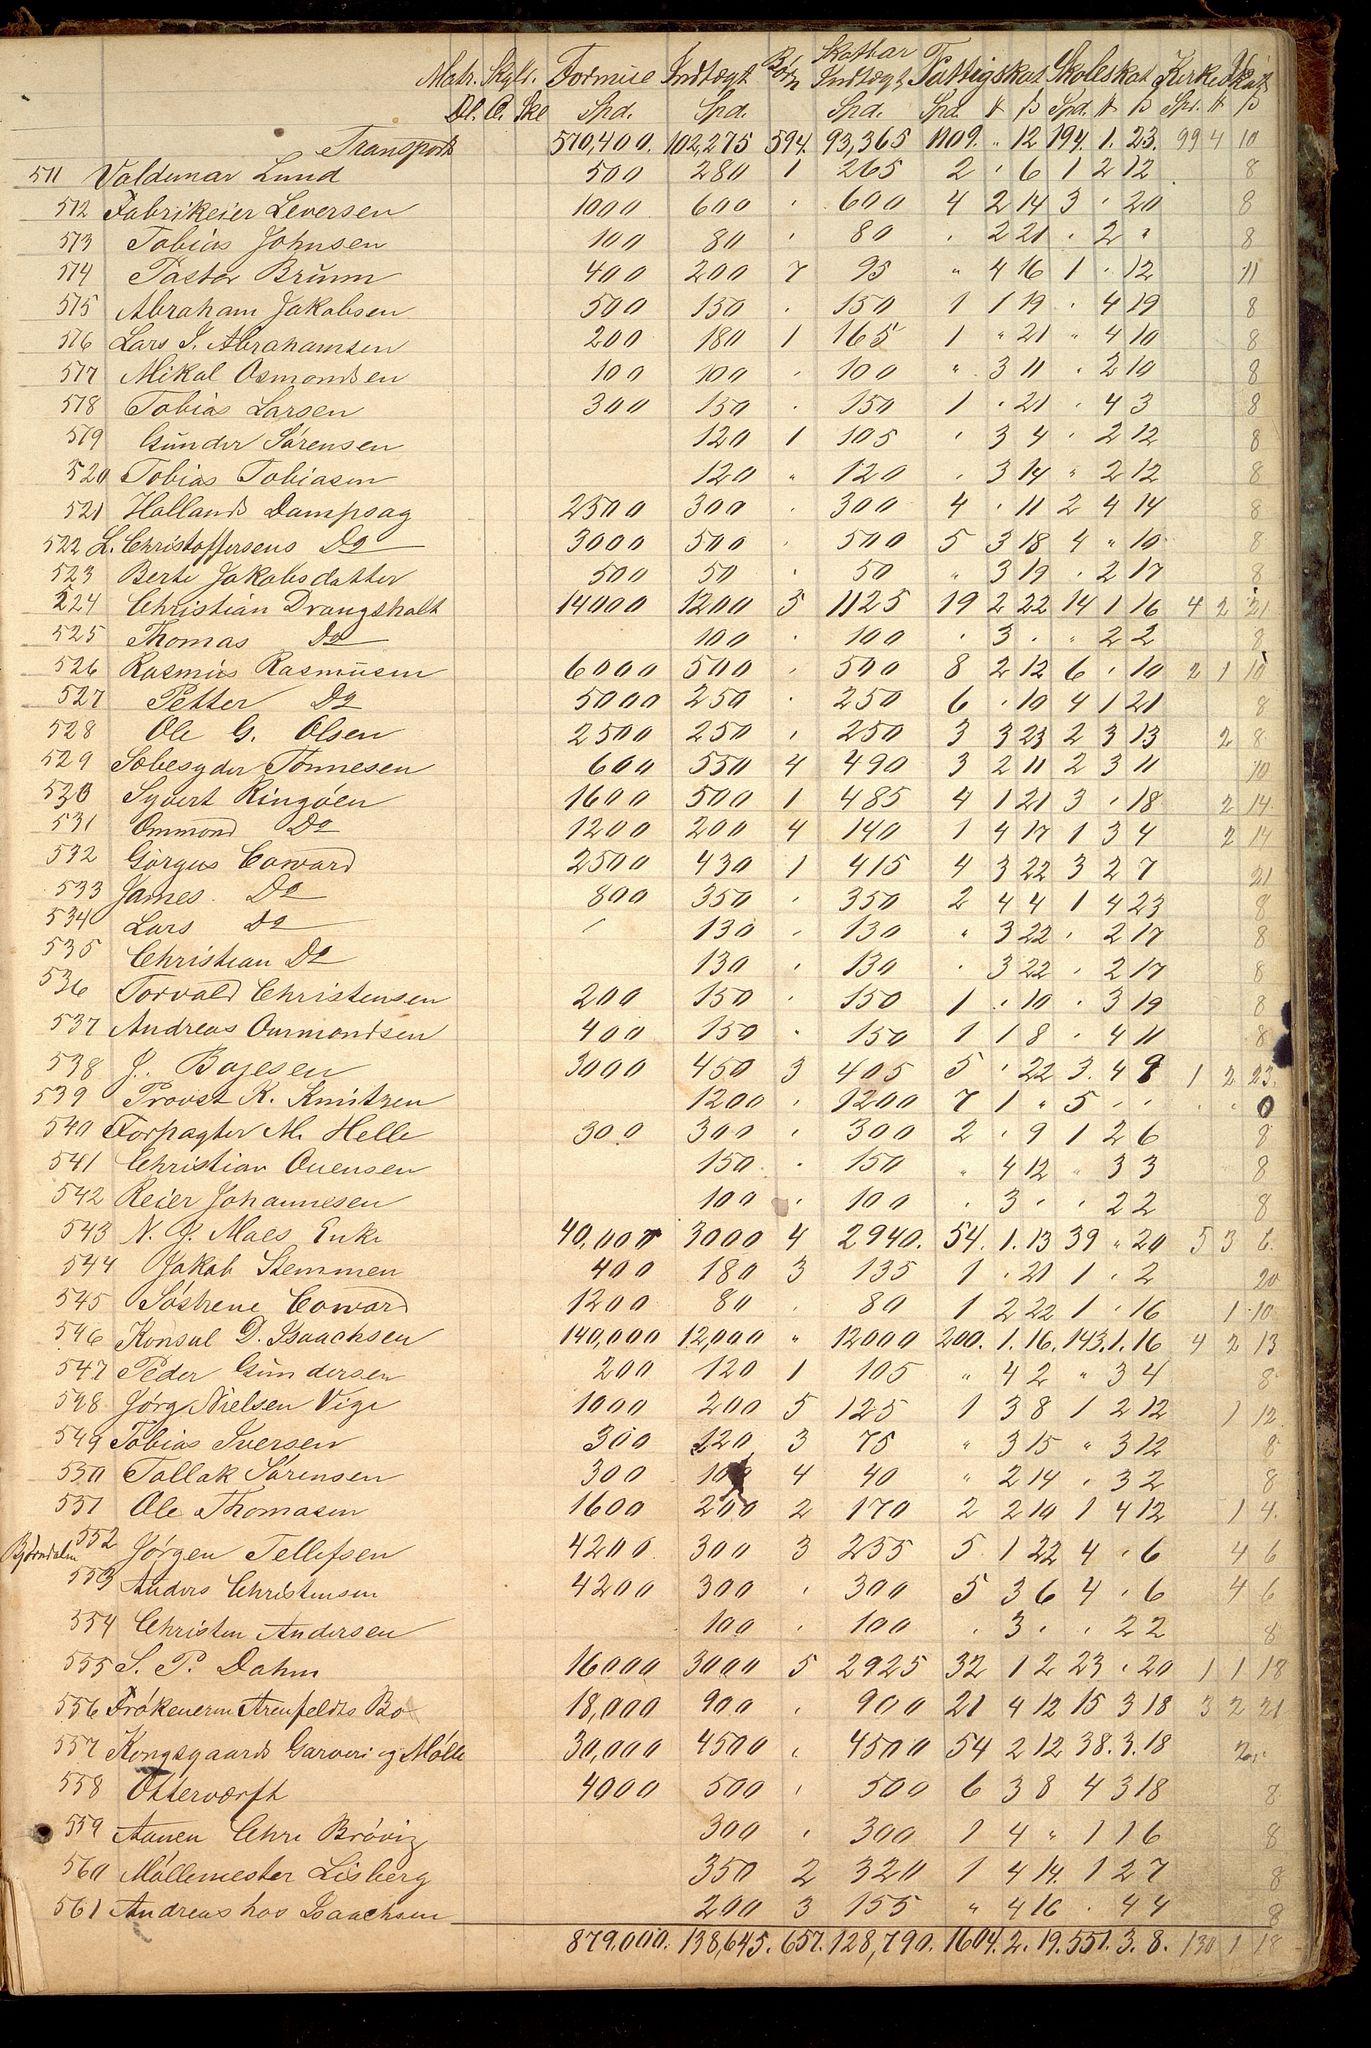 Matr. Skyld. Formue Indtægt Børn Skatbar Indtægt Fattigskat Skoleskat Kirkeskat
Dl. O. Skl Spd. Spd. Spd. Spd. ʈ β Spd. ʈ β Spd. ʈ β
Transport 570,400. 102,275 594. 93,365 1109. " 12 194. 1. 23. 99 4 10
511 Valdemar Lund 500 280 1 265 2 · 6 1 2 12 8
512 Fabrikeier Leversen 1000 600 · 600 4 2 14 3 · 20 8
513 Tobias Johnsen 100 80 · 80 · 2 21 · 2 " 8
514 Pastor Bruun 400 200 7 95 " 4 16 1 · 12 11
515 Abraham Jakobsen 500 150 · 150 1 1 19 · 4 19 8
516 Lars J. Abrahamsen 200 180 1 165 1 " 21 " 4 10 8
517 Mikal Osmondsen 100 100 · 100 " 3 11 · 2 10 8
518 Tobias Larsen 300 150 · 150 1 · 21 · 4 3 8
519 Gunder Sörensen 120 1 105 · 3 4 · 2 12 8
520 Tobias Tobiasen 120 " 120 · 3 14 " 2 12 8
521 Hollands Dampsag 2500 300 · 300 4 · 11 2 4 14 8
522 L. Christoffersens Do 3000 500 · 500 5 3 18 4 " 10 8
523 Berte Jakobsdatter 500 50 · 50 " 3 19 · 2 17 8
524 Christian Drangsholt 14000 1200 5 1125 19 2 22 14 1 16 4 2 21
525 Thomas Do 100 · 100 · 3 · " 2 2 8
526 Rasmus Rasmusen 6000 500 · 500 8 2 12 6 · 10 2 1 10
527 Petter Do 5000 250 · 250 6 · 10 4 1 21 8
528 Ole G. Olsen 2500 250 · 250 3 3 23 2 3 13 2 8
529 Sobesyder Tönnesen 600 550 4 490 3 2 11 2 3 11 10
530 Syvert Ringöen 1600 500 1 485 4 1 21 3 · 18 2 14
531 Ommond Do 1200 200 4 140 1 4 17 1 3 4 2 14
532 Görgus Coward 2500 430 1 415 4 3 22 3 2 7 21
533 James. Do 800 350 · 350 2 4 4 1 4 23 8
534 Lars Do 130 · 130 " 3 22 · 2 17 8
535 Christian Do 130 · 130 · 3 22 · 2 17 8
536 Torvald Christensen 200 150 · 150 1 · 10 · 3 19 8
537 Andreas Ommondsen 400 150 · 150 1 1 8 · 4 11 8
538 J. Boyesen 3000 450 3 405 5 · 22 3. 4 9 1 2 23.
539 Provst K. Kmitzen 1200 · 1200 7 1 " 5 · · · · 0
540 Forpagter M. Helle 300 300 · 300 2 · 9 1 2 6 8
541 Christian Ouensen 150 · 150 " 4 12 " 3 3 8
542 Reier Johannesen 100 · 100 · 3 · · 2 2 8
543 N. J. Moes Enke 40,000 3000 4 2940. 54. 1. 13 39 " 20 5 3 6.
544 Jakob Stemmen 400 180 3 135 1 · 21 1 · 2 20
545 Söstrene Coward 1200 80 · 80 1 2 22 1 · 16 1 10
546 Konsul D. Isaachsen 140,000 12,000 " 12000 200. 1. 16. 143. 1. 16 4 2 13
547 Peder Gundersen 200 120 1 105 " 4 2 " 3 4 8
548 Jörg Nielsen Vige 1000 200 5 125 1 3 8 1 2 12 1 12
549 Tobias Iversen 300 120 3 75 " 3 15 " 3 12 8
550 Tallak Sörensen 300 100 4 40 " 2 14 · 3 2 8
551 Ole Thomasen 1600 200 2 170 2 2 10 1 4 12 1 4.
Bjørndalen 552 Jörgen Tellefsen 4200 300 3 255 5. 1 22 4 · 6 4 6
553 Anders Christensen 4200 300 · 300 5 3 6 4 · 6 4 6
554 Christen Andersen 100 · 100 · 3 · · 2 2 8
555 S. P. Dahm 16000 3000 5 2925 32 1 2 23 · 20 1 1 18
556 Frökenerne Arenfeldts Bo 18,000 900 · 900 21 4 12 15 3 18 3 2 21
557 Kongsgaards Garveri og Mölle 30,000 4500 · 4500 54 2 12 38. 3. 18 2
558 Otterværft 4000 500 · 500 6 3 8 4 3 18 8
559 Aanen Chr. Brövig 300 · 300 1 4 " 1 1 6 8
560 Möllemester Lisberg 350 2 320 1 4 14. 1 2 7 8
561 Andreas hos Isaachsen 200 3 155 " 4 16 · 4 4 8
879,000. 138,645. 657. 128,790. 1604. 2. 19. 551. 3. 8. 130 1 18